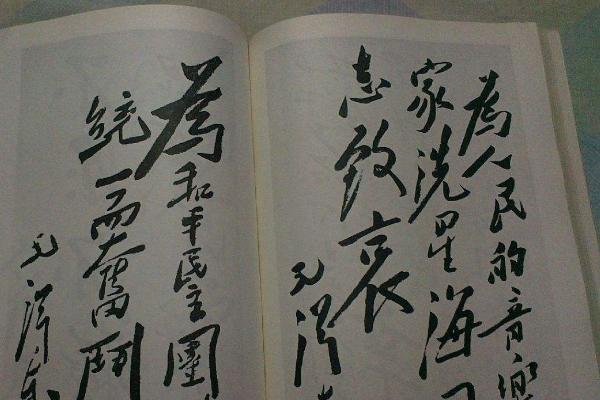 為人民的音樂
家洗星海
志致哀
毛澤
為和平民主團
統一而奮鬥
毛澤东